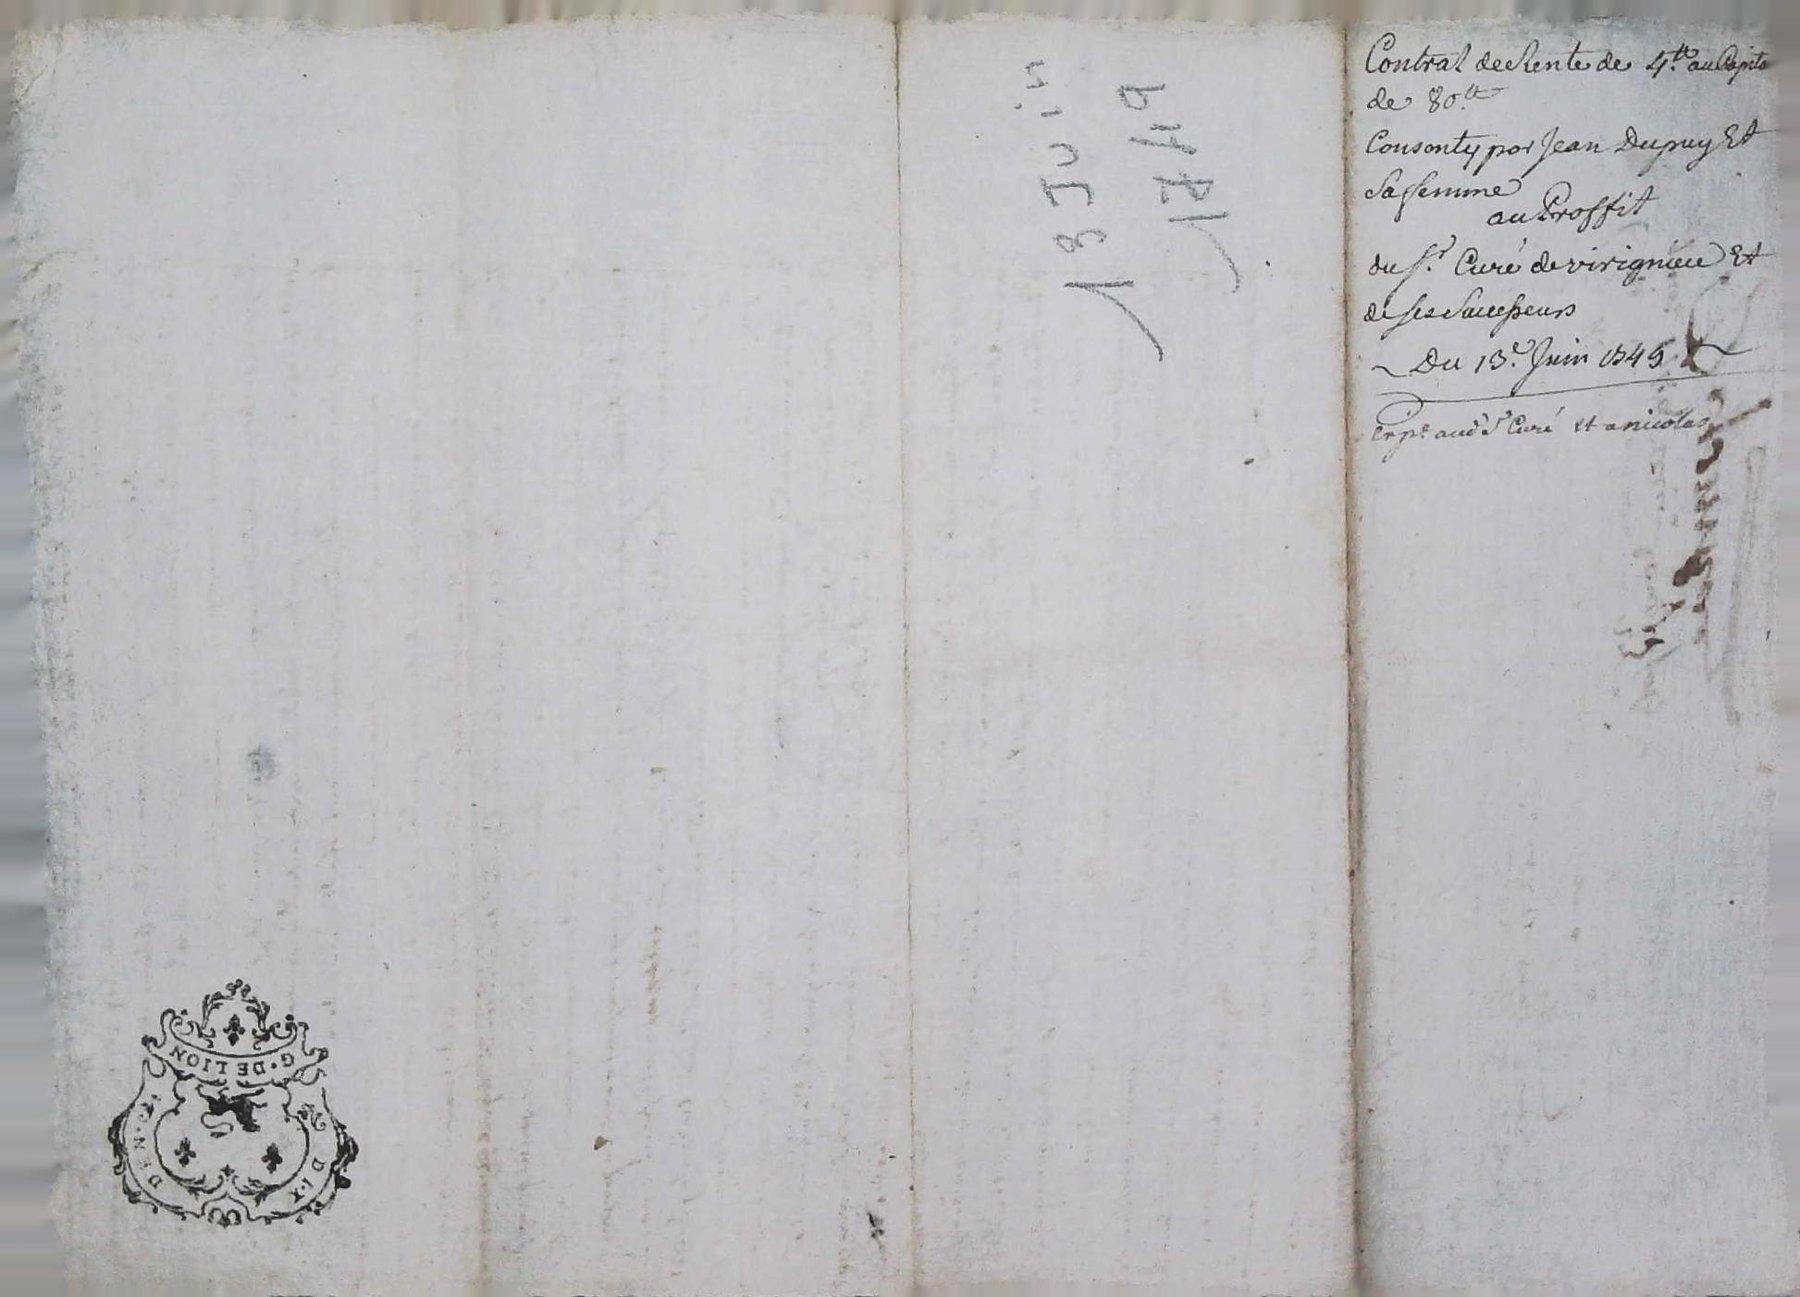 Contrat de Rente de 4.tt au Capita
de 80.tt
Consenty par Jean Dupuy Et
Sa femme
au Proffit
du S.r Curé de virignieu Et
de ses Successeurs
Du 13.e Juin 1749
Exp.e aud S.r Curé et a nicolas
13 Juin
1749
G. DE LION
DEN
DIX